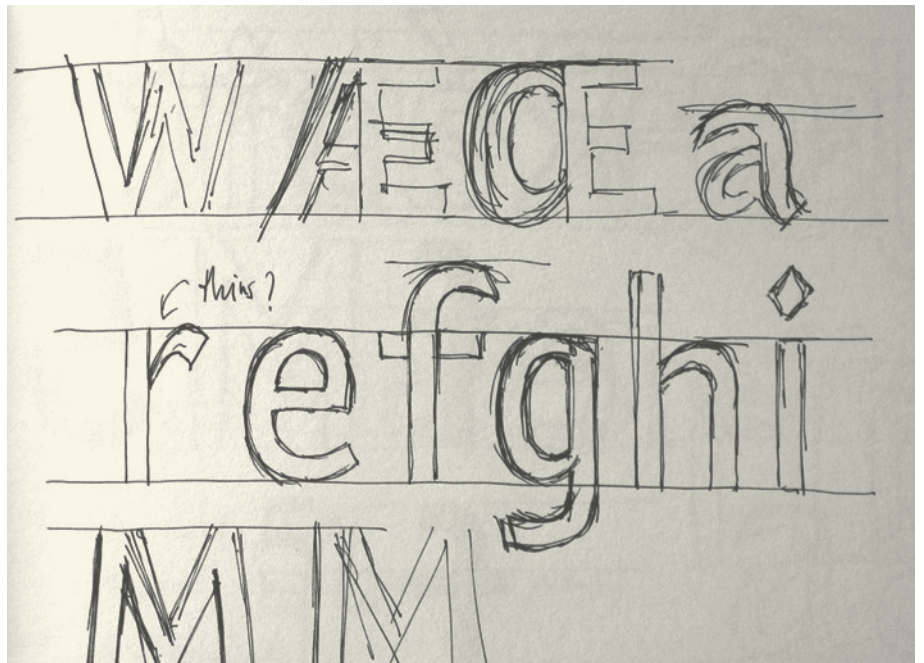 WÆŒa
thins?
refghi
MM